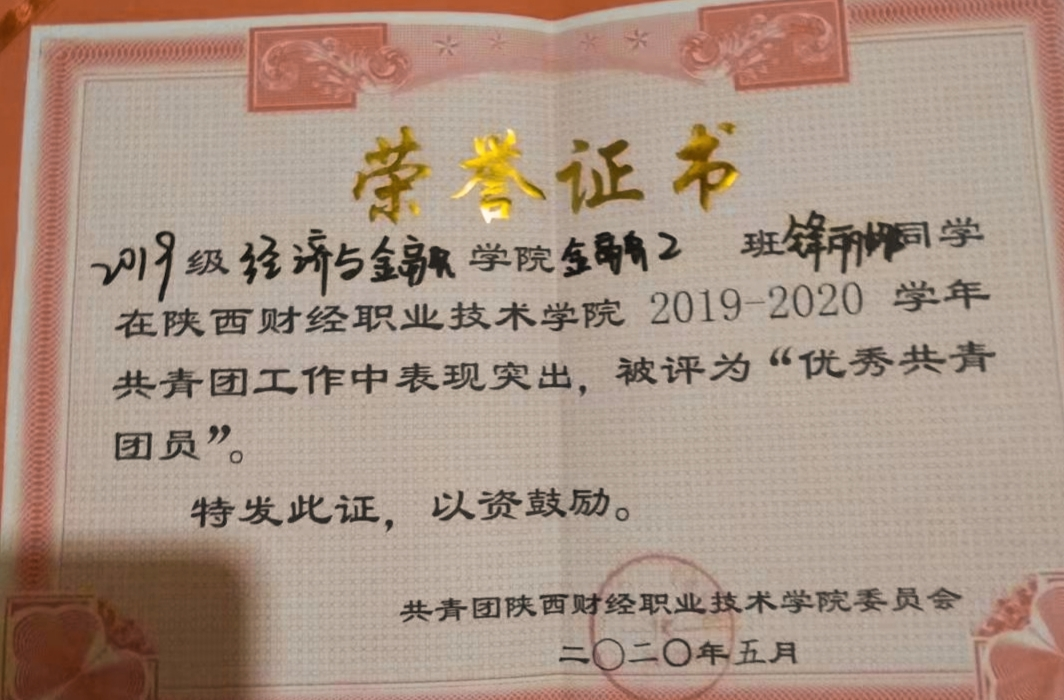 荣誉证书
2019级经济与金融学院金融2 班锋丽娜同学
在陕西财经职业技术学院 2019-2020 学年
共青团工作中表现突出，被评为“优秀共青
团员”。
特发此证，以资鼓励。
共青团陕西财经职业技术学院委员会
二〇二〇年五月